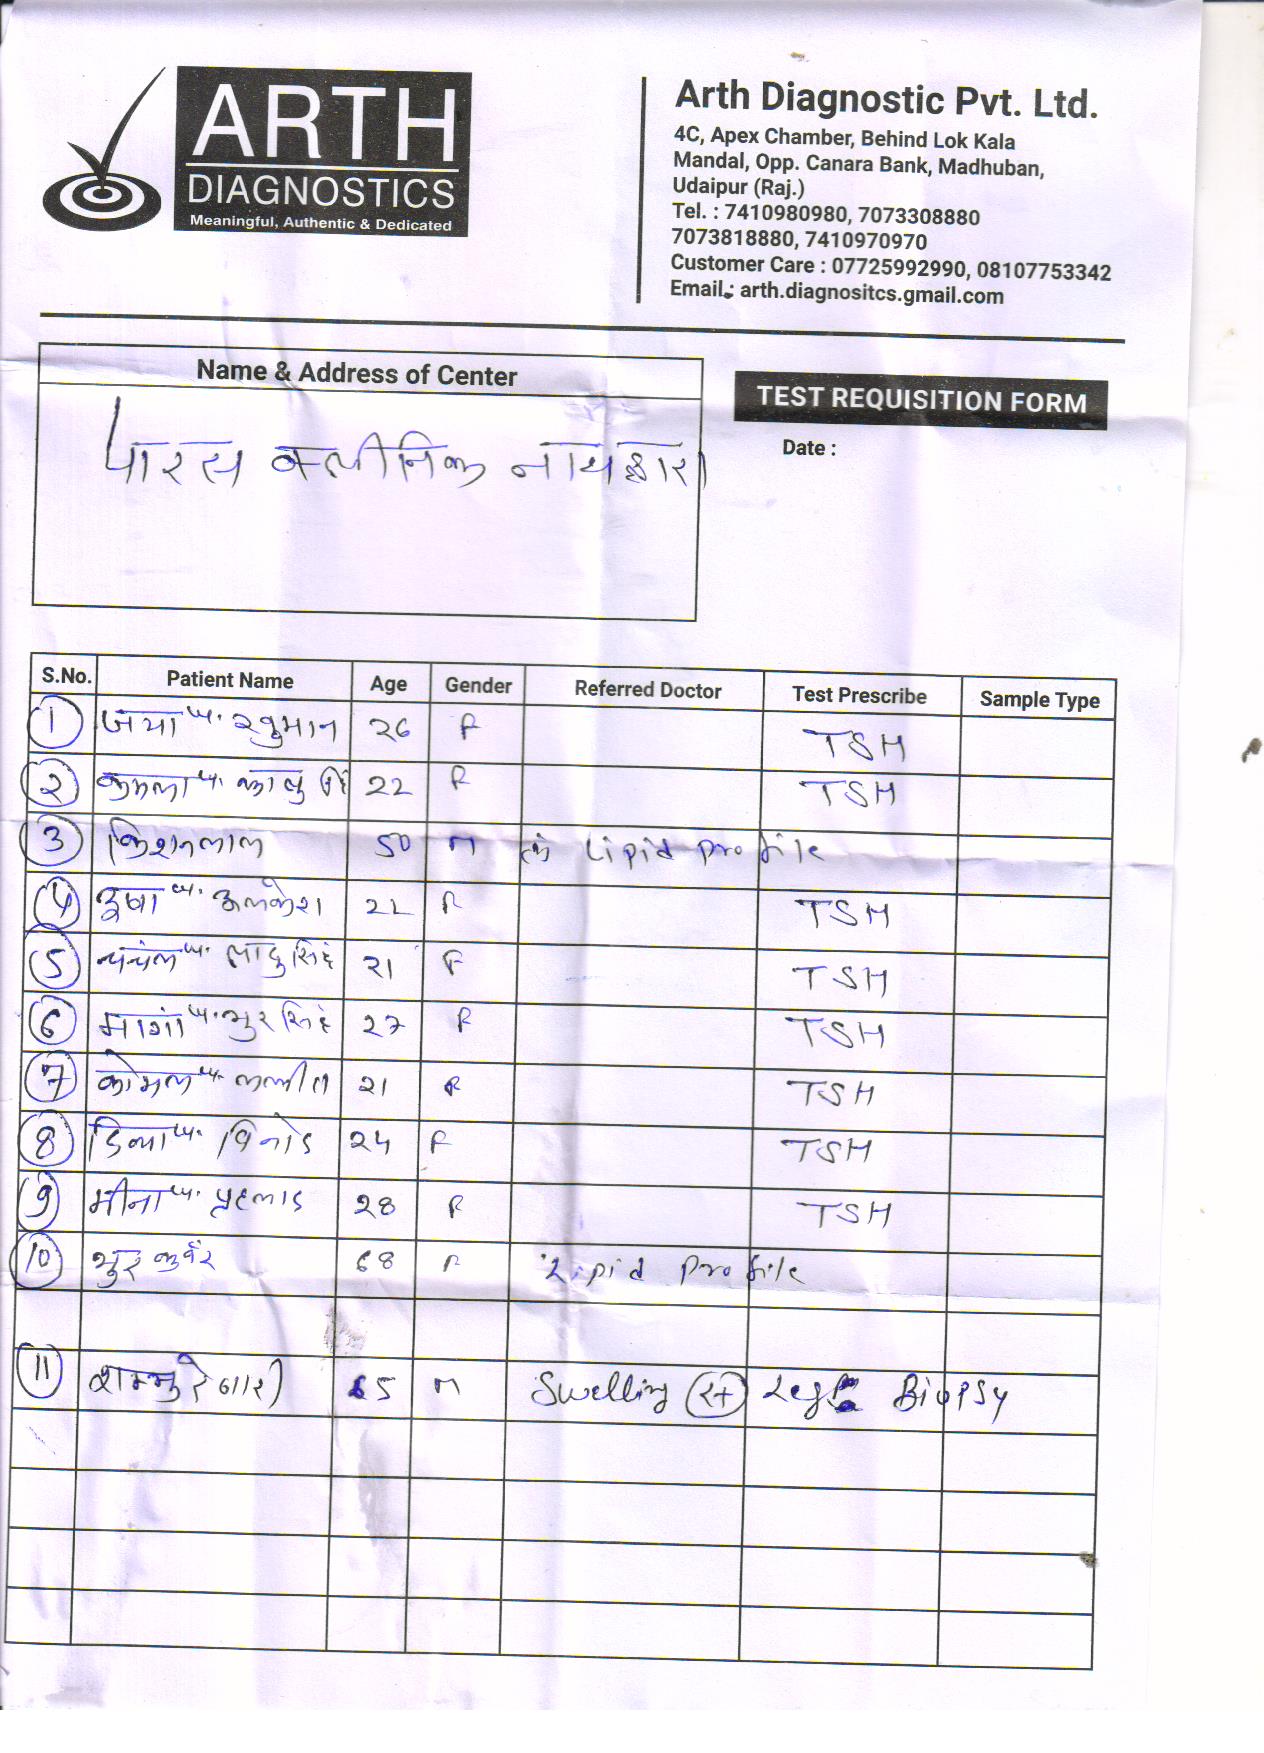 ARTH
DIAGNOSTICS
Meaningful, Authentic & Dedicated
Arth Diagnostic Pvt. Ltd.
4C, Apex Chamber, Behind Lok Kala
Mandal, Opp. Canara Bank, Madhuban,
Udaipur (Raj.)
Tel. : 7410980980, 7073308880
7073818880, 7410970970
Customer Care : 07725992990, 08107753342
Email.: arth.diagnositcs.gmail.com
Name & Address of Center
पारस क्लीनिक नाथद्वारा
TEST REQUISITION FORM
Date :
S.No. Patient Name Age Gender Referred Doctor Test Prescribe Sample Type
1 जया 26 F TSH
2 कमला प. कालु सिं 22 F TSH
3 किशनलाल 50 M Lipid Profile
4 प. 22 F TSH
5 प. लादु सिंह 21 F TSH
6 मांगी प. भुर सिंह 27 F TSH
7 कोमल प. ललीत 21 F TSH
8 प. विनोद 24 F TSH
9 मीना प. प्रहलाद 28 F TSH
10 भुर कुवंर 68 F Lipid Profile
11 शम्भु रेगारी 65 M Swelling Rt Leg Biopsy